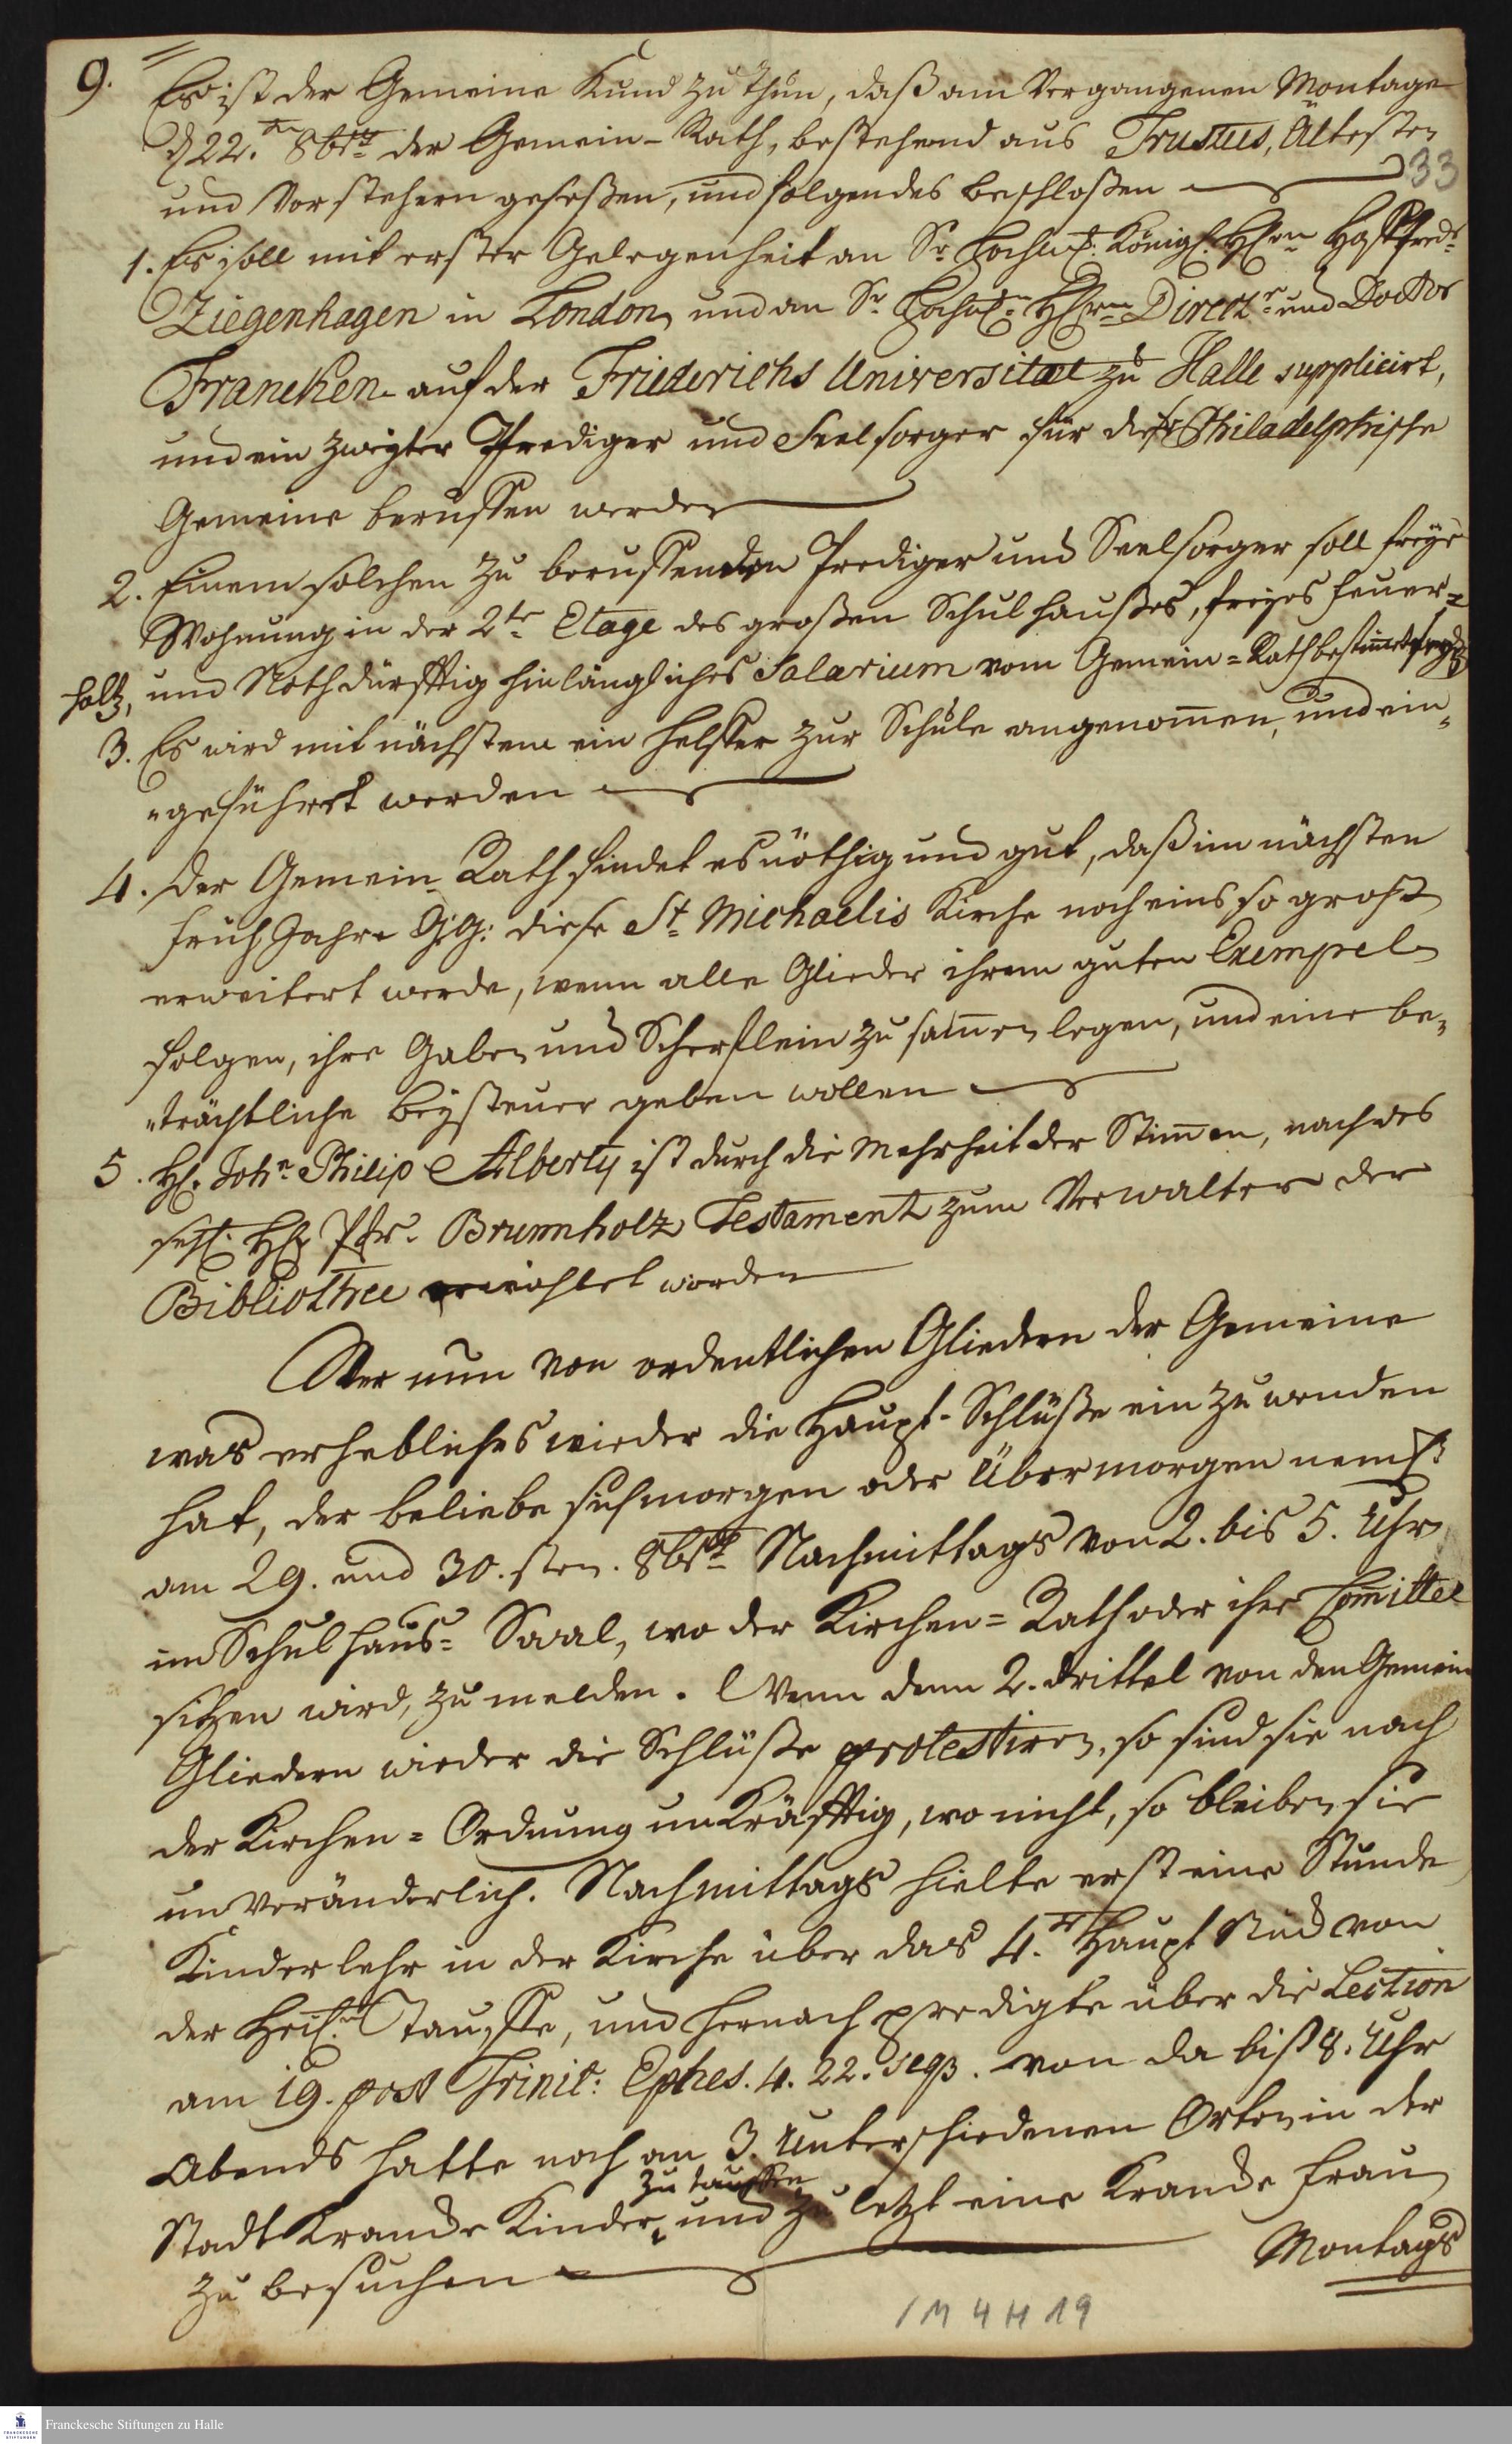 9.
Es ist der Gemeine Kund zu thun, daß am Vergangenen Montage
d 22.ten 8br der Gemein-Rath, bestehend aus Trustees, Ältesten
33
und Vorstehern geseßen, und folgendes beschloßen
1. Es soll mit erster Gelegenheit an Sr. Hochw. Königl. HErrn Hoffpred.
Ziegenhagen in London, und an Sr. Hochw. HErrn Direct. und Doctor
Francken auf der Friederichs Universitaet zu Halle supplicirt,
und ein zweyter Prediger und Seelsorger für diese Philadelphische
Gemeine beruffen werden
2. Einem solchen zu beruffenden Prediger und Seelsorger soll freye
Wohnung in der 2te Etage des großen Schulhaußes, freyes Feuer=
holtz, und Nothdürfftig hinlängliches Salarium vom Gemein=Rath bestimmt
3. Es wird mit nächstem ein Helffer zur Schule angenommen, und ein„
„geführet werden
4. Der Gemein-Rath findet es nöthig und gut, daß im nächsten
Früh Jahre G.G: diese St. Michaelis Kirche noch eins so groß
erweitert werde, wenn alle Glieder ihrem guten Exempel
folgen, ihre Gaben und Scherflein zusammen legen, und eine be„
„trächtliche Beysteuer geben wollen
5. H. John Philip Alberty ist durch die Mehrheit der Stimmen, nach des
seel. HE Pfr. Brunnholz Testament zum Verwalter der
Bibliothec erwählet worden
Wer nun von ordentlichen Gliedern der Gemeine
was erhebliches wieder die Haupt-Schlüße einzuwenden
hat, der beliebe sich morgen oder Übermorgen neml.
am 29. und 30.sten. 8br Nachmittags von 2. bis 5. Uhr
im Schulhaus=Saal, wo der Kirchen=Rath oder ihre Committee
sitzen wird, zu melden. Wenn denn 2. drittel von den Gemein
Gliedern wieder die Schlüße protestiren, so sind sie nach
der Kirchen=Ordnung unkräfftig, wo nicht, so bleiben sie
unveränderlich. Nachmittags hielte erst eine Stunde
Kinderlehr in der Kirche über das 4.te Haupt Stück von
der Heil. Tauffe, und hernach predigte über die Lection
am 19. post Trinit: Ephes. 4. 22. seqq. von da biß 8. Uhr
Abends hatte noch an 3. Unterschiedenen Orten in der
zu tauffen
Stadt Krancke Kinder, und zu letzt eine Krancke Frau
zu besuchen
Montags
1 M 4 H 19
Franckesche Stiftungen zu Halle